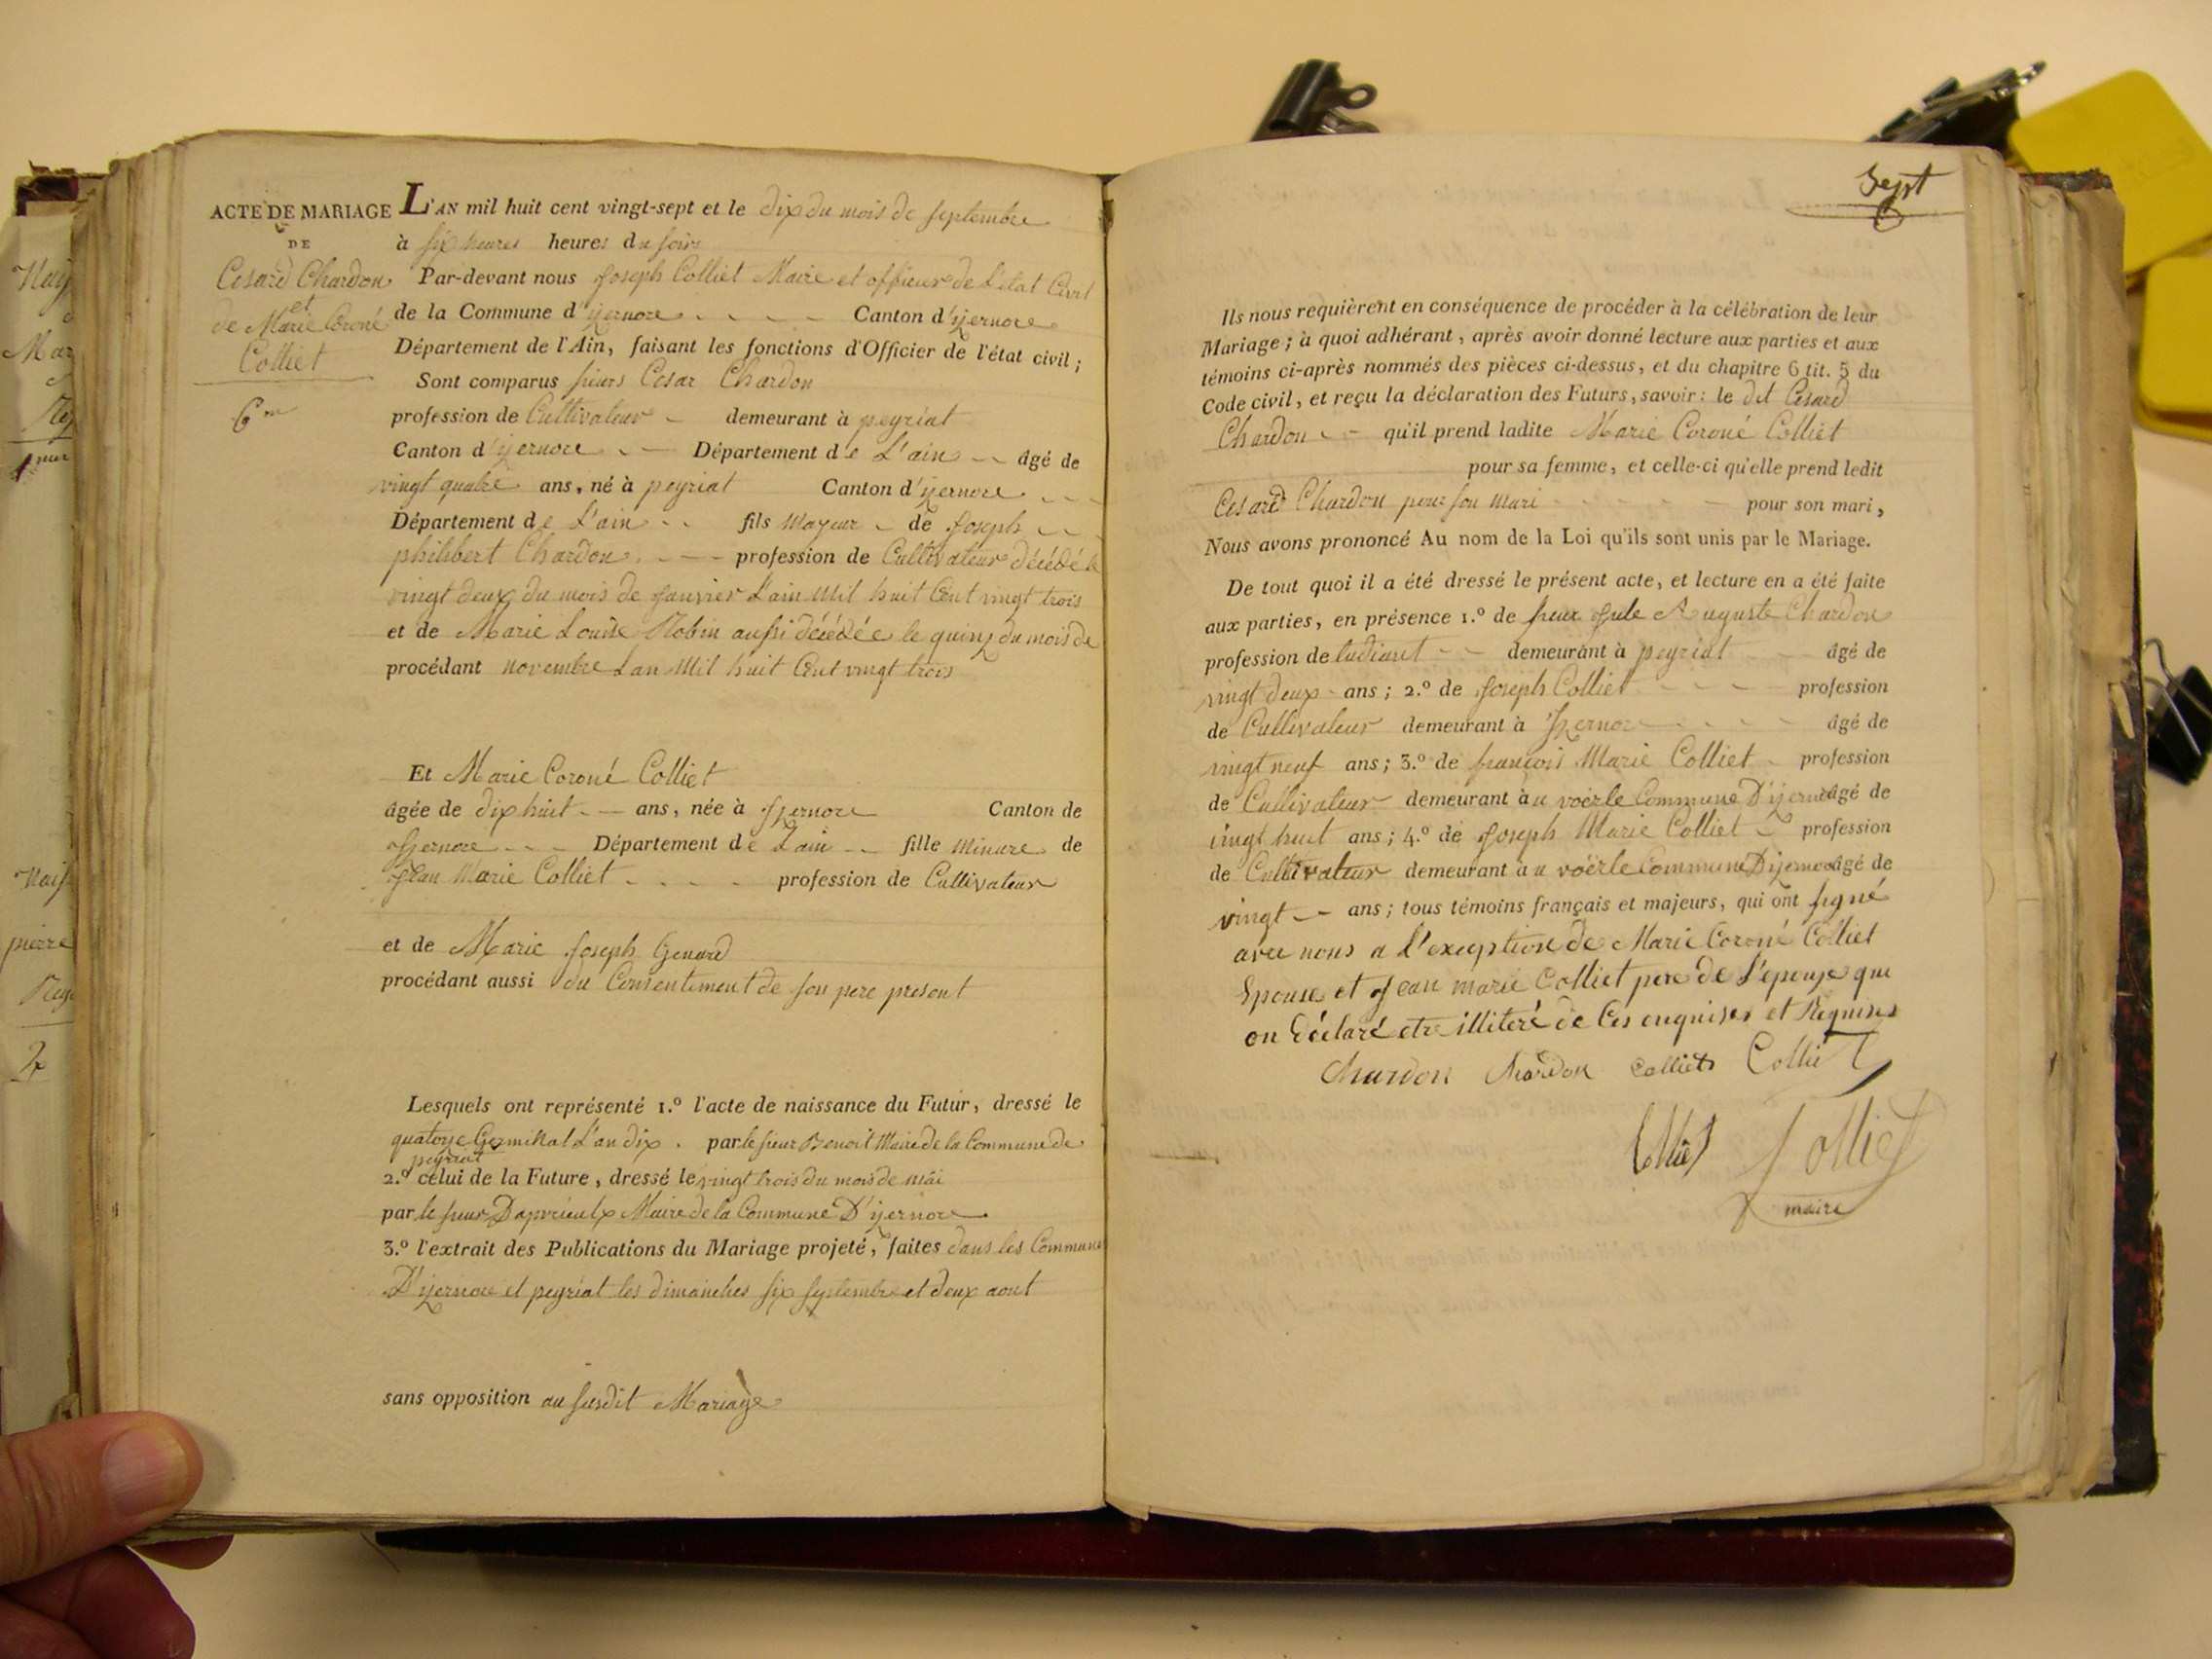 ACTE DE MARIAGE
DE
Cesard Chardon
et
de Marie Coroné
Colliet
6me
L'AN mil huit cent vingt-sept et le dix du mois de septembre
à six heures heures du soire
Par-devant nous Joseph Colliet Maire et officier de L'etat Civil
de la Commune d'ijernore Canton d'ijernore
Département de l'Ain, faisant les fonctions d'Officier de l'état civil;
Sont comparus sieurs Cesar Chardon
profession de Cultivateur demeurant à peyriat
Canton d'ijernore Département de L'ain âgé de
vingt quatre ans, né à peyriat Canton d'ijernore
Département de L'ain fils mayeur de Joseph
philibert Chardon profession de Cultivateur décédé le
vingt deux du mois de Janvier L'ain mil huit Cent vingt trois
et de Marie Louise Robin aussi décédée le quinz du mois de
procédant novembre Lan mil huit Cent vingt trois
Et Marie Coroné Colliet
âgée de dix huit ans, née à Izernore Canton de
Izernore Département de Lain fille minure de
Jean Marie Colliet profession de Cultivateur
et de Marie Joseph Genard
procédant aussi du Consentement de son pere present
Lesquels ont représenté 1.º l'acte de naissance du Futur, dressé le
quatorze Germinal L'an dix . par le sieur Benoit Maire de la Commune de
peyriat
2.º celui de la Future, dressé le vingt trois du mois de mai
par le sieur Maire de la Commune D'ijernore
3.º l'extrait des Publications du Mariage projeté, faites dans les Commune
D'ijernore et peyriat les dimanches six septembre et deux aout
sans opposition au susdit Mariage
Sept
Ils nous requièrent en conséquence de procéder à la célébration de leur
Mariage; à quoi adhérant, après avoir donné lecture aux parties et aux
témoins ci-après nommés des pièces ci-dessus, et du chapitre 6 tit. 5 du
Code civil, et reçu la déclaration des Futurs, savoir: le dit Cesard
Chardon qu'il prend ladite Marie Coroné Colliet
pour sa femme, et celle-ci qu'elle prend ledit
Cesard Chardon pour son mari pour son mari,
Nous avons prononcé Au nom de la Loi qu'ils sont unis par le Mariage.
De tout quoi il a été dressé le présent acte, et lecture en a été faite
aux parties, en présence 1.º de sieur Jule Auguste Chardon
profession de demeurant à peyriat âgé de
vingt deux ans; 2.º de Joseph Colliet profession
de Cultivateur demeurant à Izernore âgé de
vingt neuf ans; 3.º de françois Marie Colliet profession
de Cultivateur demeurant à u voërle Commune D'ijernore âgé de
vingt huit ans; 4.º de Joseph Marie Colliet profession
de Cultivateur demeurant à u voërle Commune D'ijernore âgé de
vingt ans; tous témoins français et majeurs, qui ont signé
avec nous a L'exception de Marie Coroné Colliet
Epouse et Jean marie Colliet pere de L'epouse qui
on déclaré etre illiteré de Ces enquises et Requises
Chardon Chardon Colliet Colliet
Colliet Colliet
maire